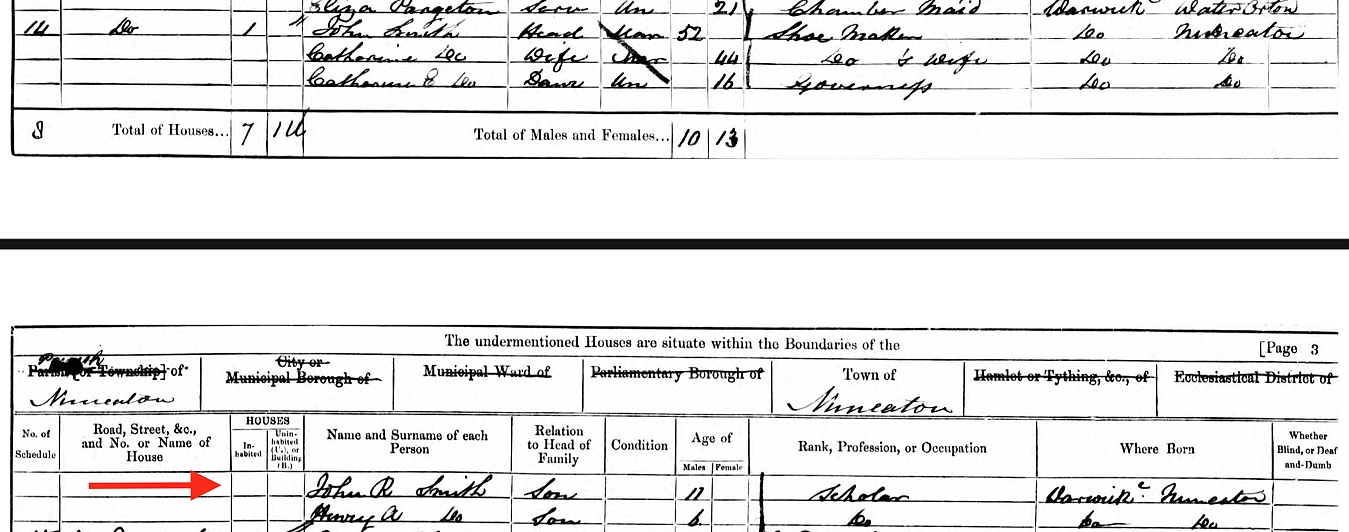 Eliza Pargeton Serv Un 21 Chamber Maid Warwick Water Orton
14 Do 1 John Smith Head Mar 52 Shoe Maker Do Nuneaton
Catharine Do Wife Mar 44 Do 's Wife Do Do
Catharine E Do Daur Un 16 Governess Do Do
8 Total of Houses... 7 Total of Males and Females... 10 13
The undermentioned Houses are situate within the Boundaries of the [Page 3
Parish [or Township] of City or Municipal Borough of Municipal Ward of Parliamentary Borough of Town of Hamlet or Tything, &c., of Ecclesiastical District of
Nuneaton Nuneaton
No. of Schedule Road, Street, &c., and No. or Name of House HOUSES In-habited Unin-habited (U.), or Building (B.) Name and Surname of each Person Relation to Head of Family Condition Age of Males Female Rank, Profession, or Occupation Where Born Whether Blind, or Deaf and-Dumb
John R Smith Son 11 Scholar Warwik Nuneaton
Henry A Do Son 6 Do Do Do